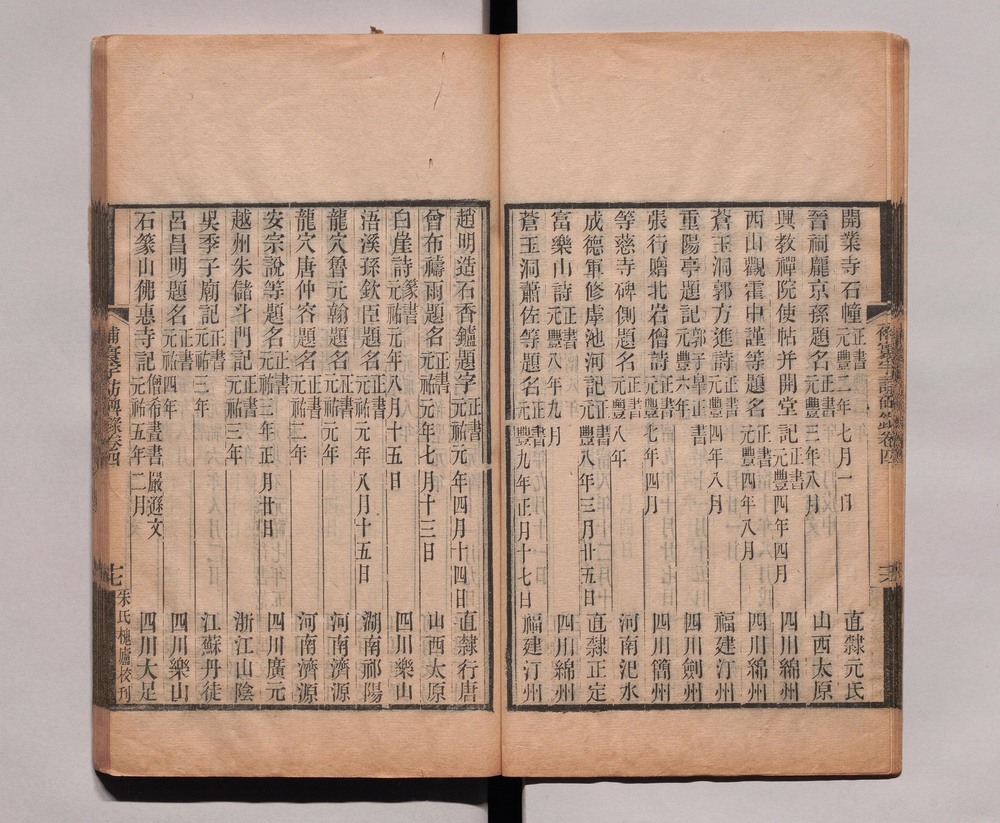 開業寺石幢 正書 元豐二年七月一日 直隸元氏
晉祠龐京孫題名 正書 元豐三年八月 山西太原
興教禪院使帖并開堂記 正書 元豐四年四月 四川綿州
西山觀霍中謹等題名 正書 元豐四年八月 四川綿州
蒼玉洞郭方進詩 正書 元豐四年八月 福建汀州
重陽亭題記 郭子皐正書 元豐六年 四川劍州
張行贈北岩僧詩 正書 元豐七年四月 四川簡州
等慈寺碑側題名 正書 元豐八年 河南汜水
成德軍修虖池河記 元豐八年三月廿五日 直隸正定
富樂山詩 正書 元豐八年九月 四川綿州
蒼玉洞蕭佐等題名 正書 元豐九年正月十七日 福建汀州
十六
趙明造石香鑪題字 正書 元祐元年四月十四日 直隸行唐
曾布禱雨題名 正書 元祐元年七月十三日 山西太原
白崖詩 篆書 元祐元年八月十五日 四川樂山
浯溪孫欽臣題名 正書 元祐元年八月十五日 湖南祁陽
龍穴魯元翰題名 正書 元祐元年 河南濟源
龍穴唐仲容題名 正書 元祐二年 河南濟源
安宗說等題名 正書 元祐三年正月廿日 四川廣元
越州朱儲斗門記 正書 元祐三年 浙江山陰
吳季子廟記 正書 元祐三年 江蘇丹徒
呂昌明題名 正書 元祐四年 四川樂山
石篆山佛惠寺記 僧希晝書嚴遜文 元祐五年二月 四川大足
補寰宇訪碑錄卷四
十七
朱氏槐廬校刊